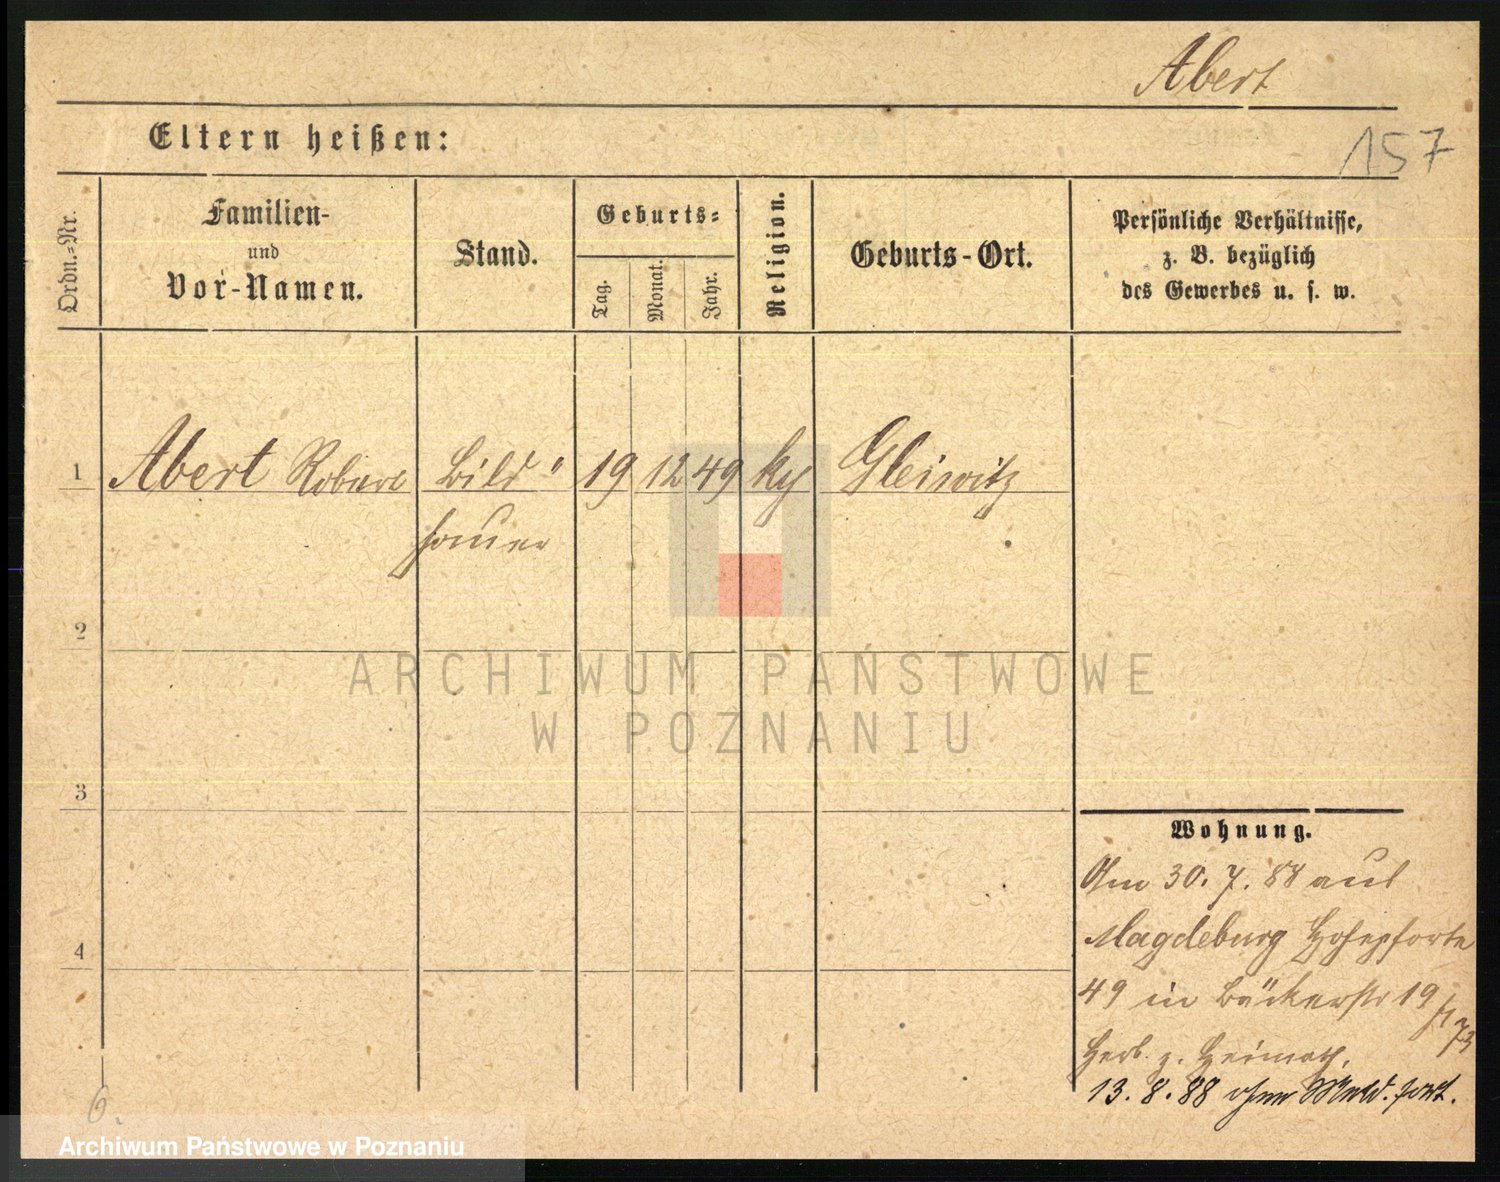 Abert
157
Eltern heißen:
Ordn.-Nr.
Familien-
und
Vor-Namen.
Stand.
Geburts-
Tag.
Monat.
Jahr.
Religion.
Geburts-Ort.
Persönliche Verhältnisse,
z. B. bezüglich
des Gewerbes u. s. w.
1 Abert Robert Bild" 19 12 49 ky Gleiwitz
hauer
2
3
4
Wohnung.
Am 30. 7. 88 aus
Magdeburg Hohepforte
49 in Bäckerstr 19
73
Herb. z. Heimath.
13. 8. 88 ohne Meld. fort.
6.
ARCHIWUM PAŃSTWOWE
W POZNANIU
Archiwum Państwowe w Poznaniu